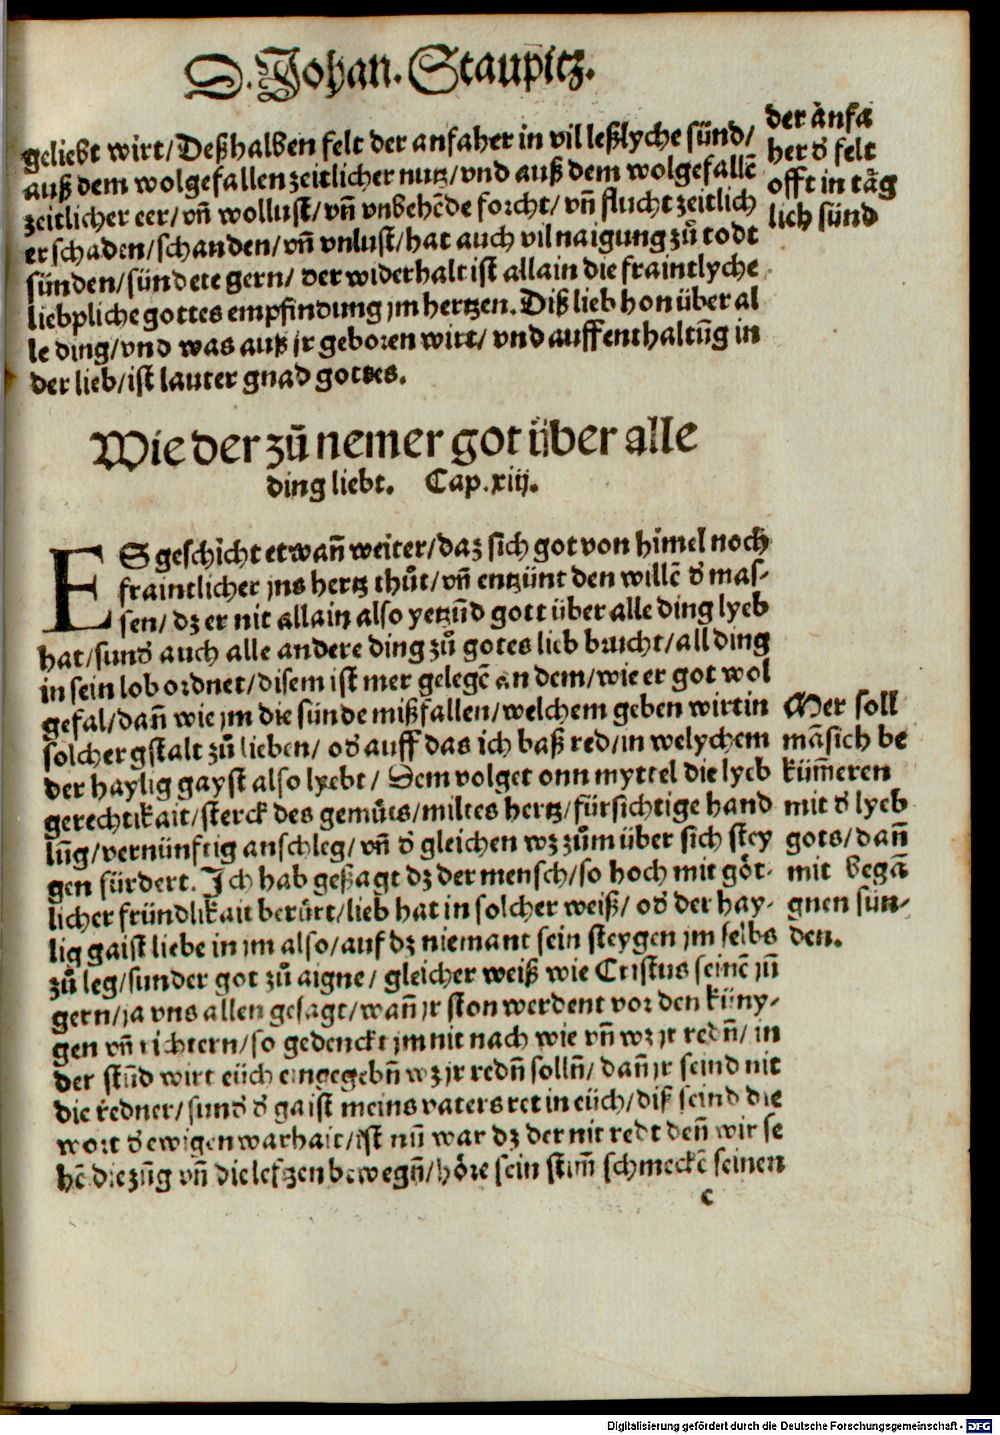 D. Johan. Staupitz.
geliebt wirt/ Deßhalben felt der anfaher in vil leßlyche sünd/
auß dem wolgefallen zeitlicher nutz/vnd auß dem wolgefallē
zeitlicher eer/ vn̄ wollust/ vn̄ vnbehēde forcht/ vn̄ flucht zeitlich
er schaden/schanden/ vn̄ vnlust/ hat auch vil naigung zů todt
sünden/ sündete gern/ der widerhalt ist allain die fraintlyche
liebpliche gottes empfindung jm hertzen. Diß lieb hon über al
le ding/vnd was auß jr geboren wirt/ vnd auffenthaltūg in
der lieb/ist lauter gnad gottes.
der anfa
her d̄ felt
offt in täg
lich sünd
Wie der zů nemer got über alle
ding liebt. Cap. xiij.
ES geschicht etwan̄ weiter/daz sich got von himel noch
fraintlicher jns hertz thůt/ vn̄ entzünt den willē d̄ mas-
sen/ dz er nit allain also yetzūd gott über alle ding lyeb
hat/sund̄ auch alle andere ding zů gotes lieb braucht/all ding
in sein lob ordnet/disem ist mer gelegē an dem/wie er got wol
gefal/dan̄ wie jm die sünde mißfallen/welchem geben wirt in
solcher gstalt zů lieben/ od̄ auff das ich baß red/in welychem
der haylig gayst also lyebt/ Dem volget onn myttel die lyeb
gerechtikait/sterck des gemůts/miltes hertz/fürsichtige hand
lūg/vernünftig anschleg/ vn̄ d̄ gleichen wz zům über sich stey
gen fürdert. Ich hab gesagt dz der mensch/so hoch mit göt-
licher fründlikait berůrt/lieb hat in solcher weiß/ od̄ der hay-
lig gaist liebe in im also/auf dz niemant sein steygen jm selbs
zů leg/sunder got zů aigne/ gleicher weiß wie Cristus seinē jū
gern/ja vns allen gesagt/wan̄ jr ston werdent vor den küny-
gen vn̄ richtern/so gedenckt jm nit nach wie vn̄ wz jr redn̄/ in
der stūd wirt eüch eingegebn̄ wz jr redn̄ solln̄/ dan̄ jr seind nit
die redner/sund̄ d̄ gaist meins vaters ret in eüch/diß seind die
wort d̄ ewigen warhait/ist nū war dz der nit redt den̄ wir se
hē die zūg vn̄ die lefzen bewegn̄/höre sein stim̄ schmeckē seinen
Mer soll
mā sich be
küm̄eren
mit d̄ lyeb
gots/ dan̄
mit begā
gnen sün-
den.
c
Digitalisierung gefördert durch die Deutsche Forschungsgemeinschaft - DFG